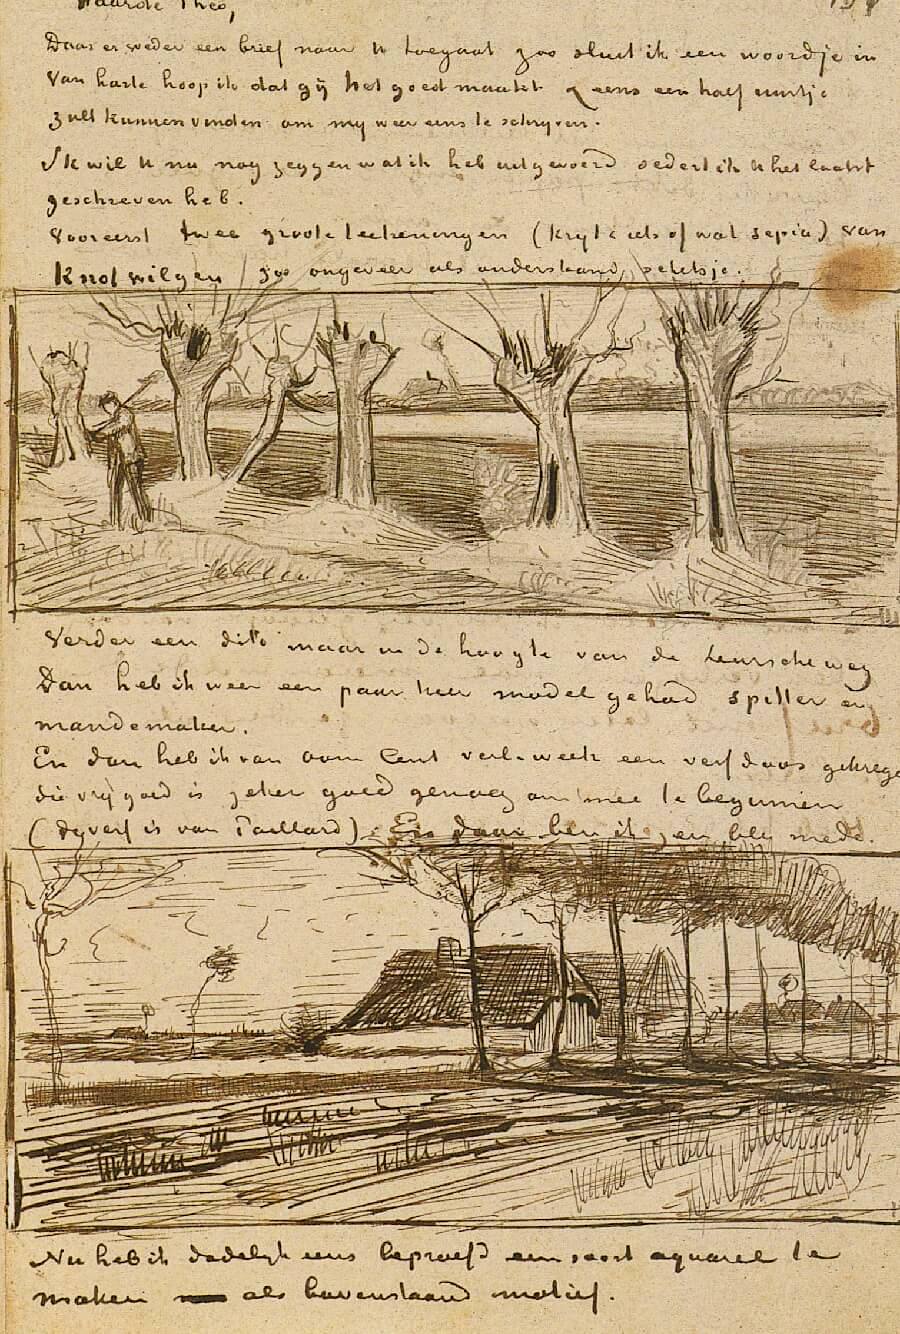 Waarde Theo,
Daar er weder een brief naar U toegaat zoo sluit ik een woordje in
Van harte hoop ik dat gij het goed maakt & eens een half uurtje
zult kunnen vinden om mij weer eens te schrijven.
Ik wil U nu nog zeggen wat ik heb uitgevoerd sedert ik U het laatst
geschreven heb.
Vooreerst twee groote teekeningen (krijt & iets of wat sepia) van
Knotwilgen zoo ongeveer als onderstaand schetsje.
Verder een dito maar in de hoogte van de Leursche weg
Dan heb ik weer een paar keer model gehad spitter en
mandemaker.
En dan heb ik van oom Cent verl. week een verfdoos gekrege
die vrij goed is zeker goed genoeg om mee te beginnen
(de verf is van Paillard). En daar ben ik zeer blij mede.
Nu heb ik dadelijk eens beproefd een soort aquarel te
maken als bovenstaand motief.